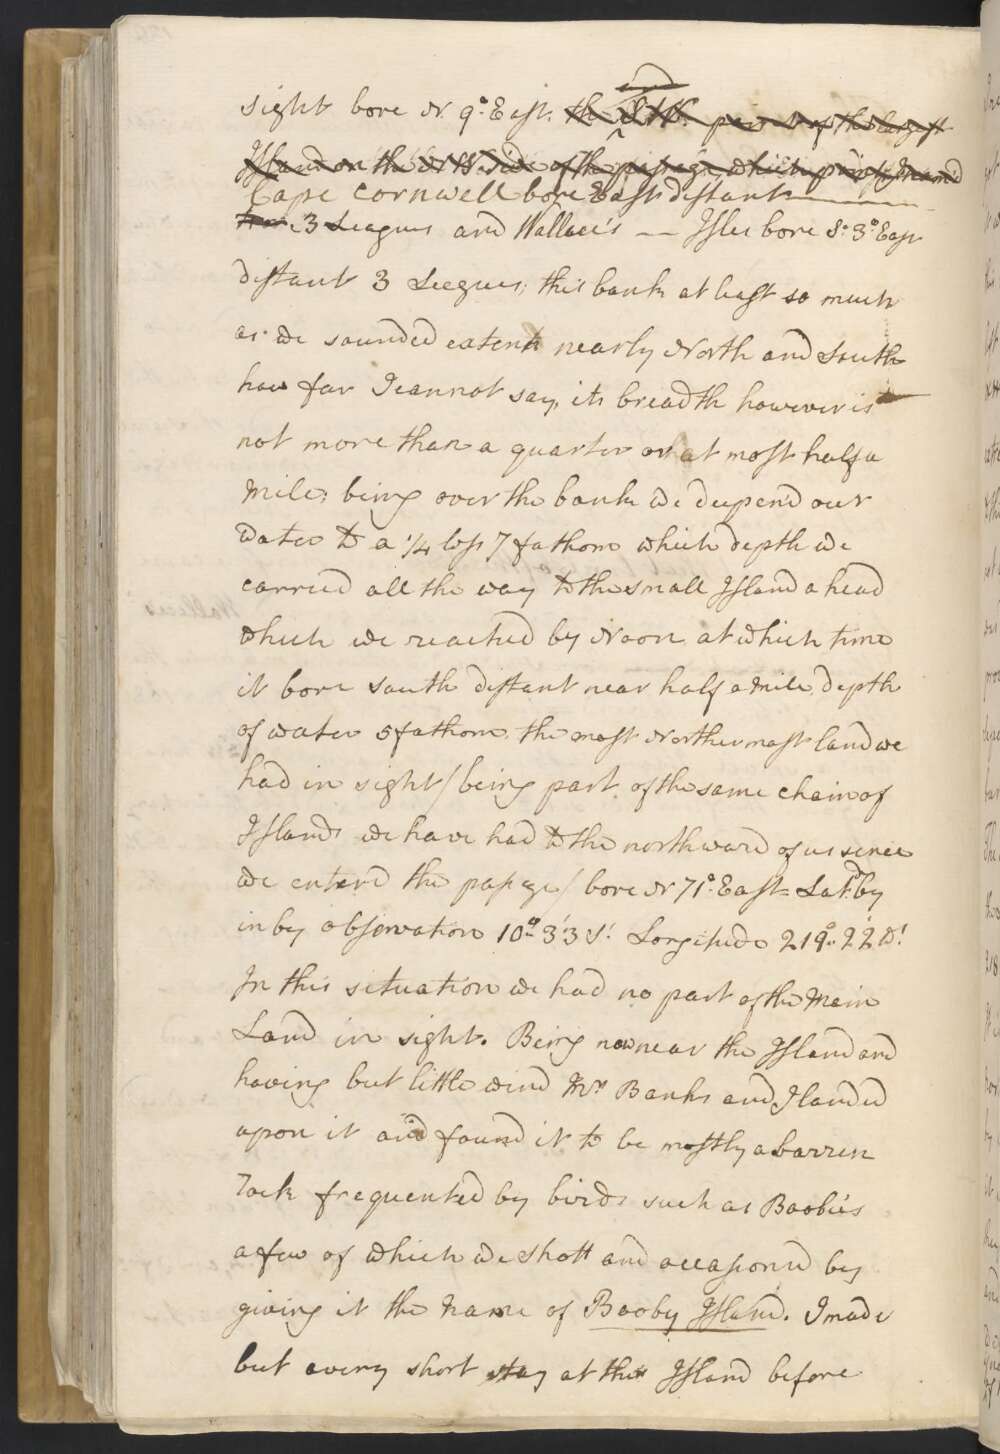 and
sight bore N. 9° East. the S.W. point of the largest
Island on the N.W. side of the passage, which point I named
Cape Cornwell bore East distant
3 Leagues and Wallace's — Isles bore S. 3° East
distant 3 Leegues, this bank at least so much
as we sounded extent nearly North and South
how far I cannot say, its breadth however is
not more than a quarter or at most half a
Mile; being over the bank we deepen'd our
Water to a 1/4 less 7 fathom which depth we
carried all the way to the small Island a head
which we reached by Noon at which time
it bore South distant near half a Mile, depth
of water 5 fathom. the most Northermost land we
had in sight / being part of the same Chain of
Islands we have had to the northward of us since
we enter'd the passage / bore N 71° East. Latd. by
in by observation 10° 33' S. Longitude 219° 22' W.
In this situation we had no part of the Main
Land in sight. Being now near the Island and
having but little wind Mr Banks and I landed
upon it and found it to be mostly a barren
rock frequented by birds such as Boobies
a few of which we shott and occasioned by
giving it the Name of Booby Island. I made
but a very short stay at this Island before